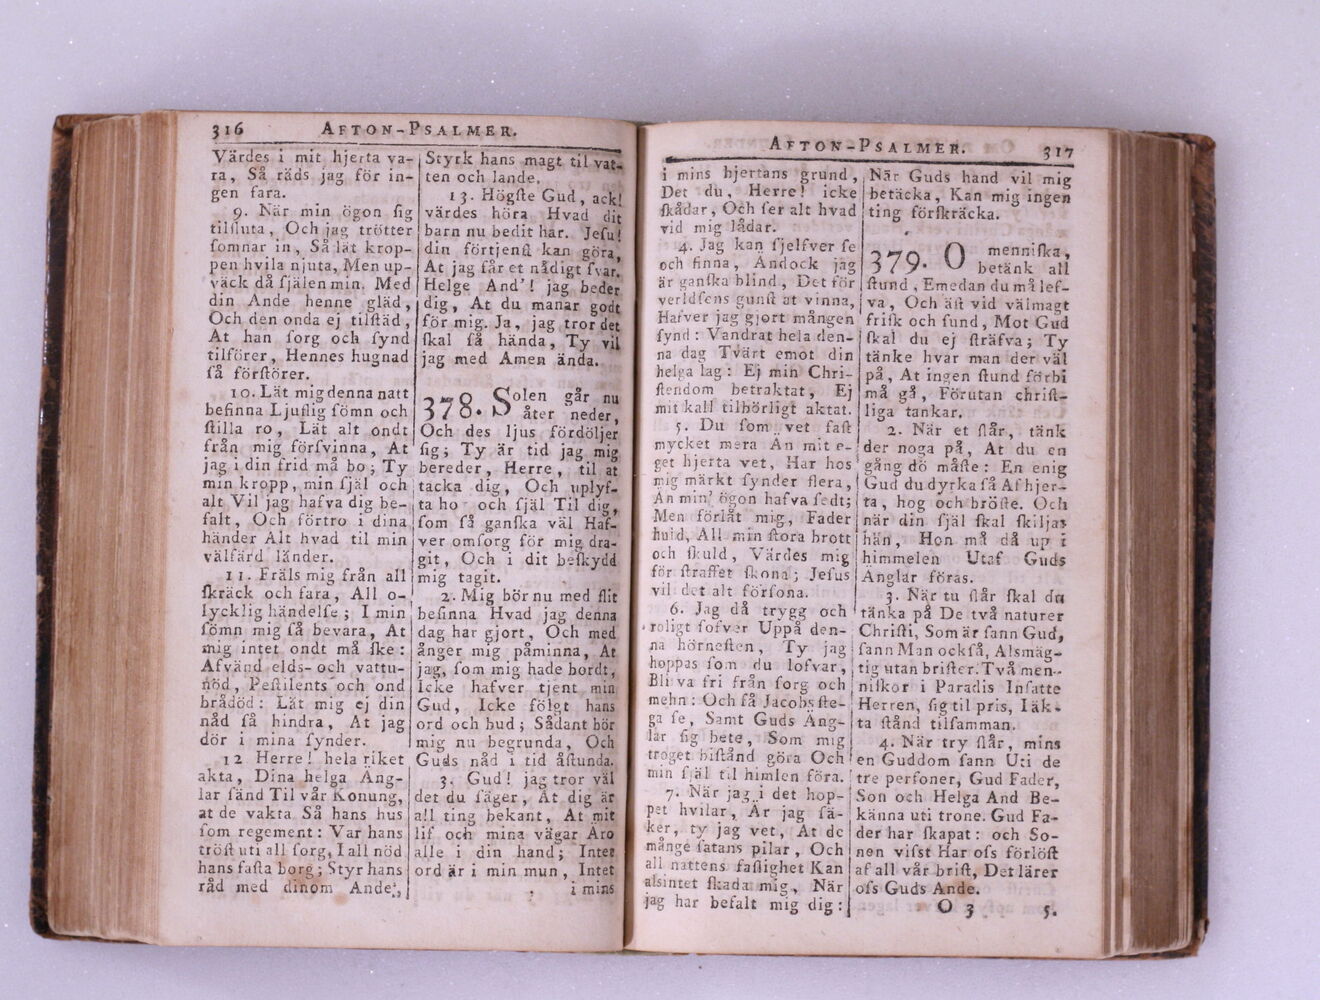 316 AFTON-PSALMER.
Värdes i mit hjerta va-
ra, Så räds jag för in-
gen fara.
9. När min ögon sig
tilsluta, Och jag trötter
somnar in, Så lät krop-
pen hvila njuta, Men up-
väck då själen min. Med
din Ande henne gläd,
Och den onda ej tilstäd,
At han sorg och synd
tilförer, Hennes hugnad
så förstörer.
10. Lät mig denna natt
befinna Ljuflig sömn och
stilla ro, Lät alt ondt
från mig försvinna, At
jag i din frid må bo; Ty
min kropp, min själ och
alt Vil jag hafva dig be-
falt, Och förtro i dina
händer Alt hvad til min
välfärd länder.
11. Fräls mig från all
skräck och fara, All o-
lycklig händelse; I min
sömn mig så bevara, At
mig intet ondt må ske:
Afvänd elds- och vattu-
nöd, Pestilents och ond
brådöd: Lät mig ej din
nåd så hindra, At jag
dör i mina synder.
12 Herre! hela riket
akta, Dina helga Äng-
lar sänd Til vår Konung,
at de vakta Så hans hus
som regement: Var hans
tröst uti all sorg, I all nöd
hans fasta borg; Styr hans
råd med dinom Ande,
Styrk hans magt til vat-
ten och lande.
13. Högste Gud, ack!
värdes höra Hvad dit
barn nu bedit har. Jesu!
din förtjenst kan göra,
At jag får et nådigt svar.
Helge And'! jag beder
dig, At du manar godt
för mig. Ja, jag tror det
skal så hända, Ty vil
jag med Amen ända.
378. Solen går nu
åter neder,
Och des ljus fördöljer
sig; Ty är tid jag mig
bereder, Herre, til at
tacka dig, Och uplyf-
ta ho och själ Til dig,
som så ganska väl Haf-
ver omsorg för mig dra-
git, Och i dit beskydd
mig tagit.
2. Mig bör nu med flit
besinna Hvad jag denna
dag har gjort, Och med
ånger mig påminna, At
jag, som mig hade bordt,
Icke hafver tjent min
Gud, Icke fölgt hans
ord och bud; Sådant bör
mig nu begrunda, Och
Guds nåd i tid åstunda.
3. Gud! jag tror väl
det du säger, At dig är
all ting bekant, At mit
lif och mina vägar Äro
alle i din hand; Intet
ord är i min mun, Intet
i mins
AFTON-PSALMER. 317
i mins hjertans grund,
Det du, Herre! icke
skådar, Och ser alt hvad
vid mig lådar.
4. Jag kan sjelfver se
och finna, Ändock jag
är ganska blind, Det för
verldsens gunst at vinna,
Hafver jag gjort mången
synd: Vandrat hela den-
na dag Tvärt emot din
helga lag: Ej min Chri-
stendom betraktat, Ej
mit kall tilbörligt aktat.
5. Du som vet fast
mycket mera Än mit e-
get hjerta vet, Har hos
mig märkt synder flera,
Än min' ögon hafva sedt;
Men förlåt mig, Fader
huld, All min stora brott
och skuld, Värdes mig
för straffet skona; Jesus
vil det alt försona.
6. Jag då trygg och
roligt sofver Uppå den-
na hörnesten, Ty jag
hoppas som du lofvar,
Bli va fri från sorg och
mehn: Och få Jacobs ste-
ga se, Samt Guds Äng-
lar sig bete, Som mig
troget bistånd göra Och
min själ til himlen föra.
7. När jag i det hop-
pet hvilar, Är jag sä-
ker, ty jag vet, At de
månge satans pilar, Och
all nattens faslighet Kan
alsintet skada mig, När
jag har befalt mig dig:
När Guds hand vil mig
betäcka, Kan mig ingen
ting förskräcka.
379. O menniska,
betänk all
stund, Emedan du må lef-
va, Och äst vid välmagt
frisk och sund, Mot Gud
skal du ej sträfva; Ty
tänke hvar man der väl
på, At ingen stund förbi
må gå, Förutan christ-
liga tankar.
2. När et slår, tänk
der noga på, At du en
gång dö måste: En enig
Gud du dyrka så Af hjer-
ta, hog och bröste. Och
när din själ skal skiljas
hän, Hon må då up i
himmelen Utaf Guds
Änglar föras.
3. När tu slår skal du
tänka på De två naturer
Christi, Som är sann Gud,
sann Man också, Alsmäg-
tig utan brister. Två men-
niskor i Paradis Insatte
Herren, sig til pris, I äk-
ta stånd tilsamman.
4. När try slår, mins
en Guddom sann Uti de
tre personer, Gud Fader,
Son och Helga And Be-
känna uti trone. Gud Fa-
der har skapat: och So-
nen visst Har oss förlöst
af all vår brist, Det lärer
oss Guds Ande.
O 3 5.